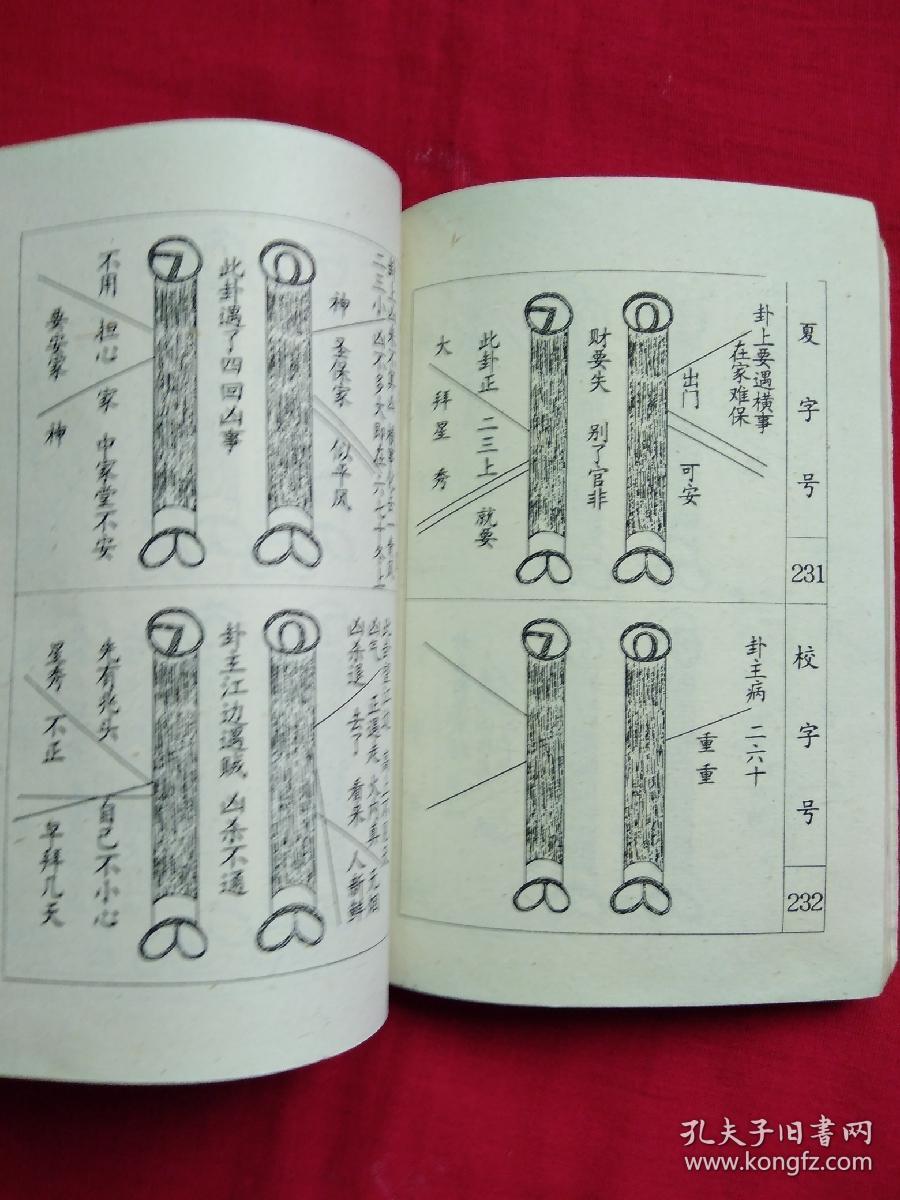 夏字号
231
卦上要遇横事
在家难保
出门 可安
财要失 别了官非
此卦正 二三上 就要
大拜星秀
校字号
232
卦主病 二六十
重重
神圣保家 似平风
此卦遇了四回凶事
不用担心 家中家堂不安
要安家神
凶杀退去了 看来人新鲜
卦主江边遇贼 凶杀不通
先有兆头 自己不小心
星秀不正 早拜几天
孔夫子旧书网
www.kongfz.com